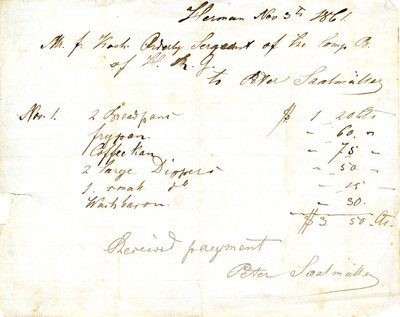 Herman Nov 3th 1861.
Mr. f. Koch Orderly Sergeant of the Comp B.
of H. R. G.
to Peter Saalmüller
Nov. 1. 2 Breadpans $ 1 20 Cts
frypan. " 60. "
1 Coffee Kan " 75 "
2 large Dippers " 50 "
1. small do " 15 "
Washbason. " 30.
$ 3 50 Cts.
Received payment
Peter Saalmüller